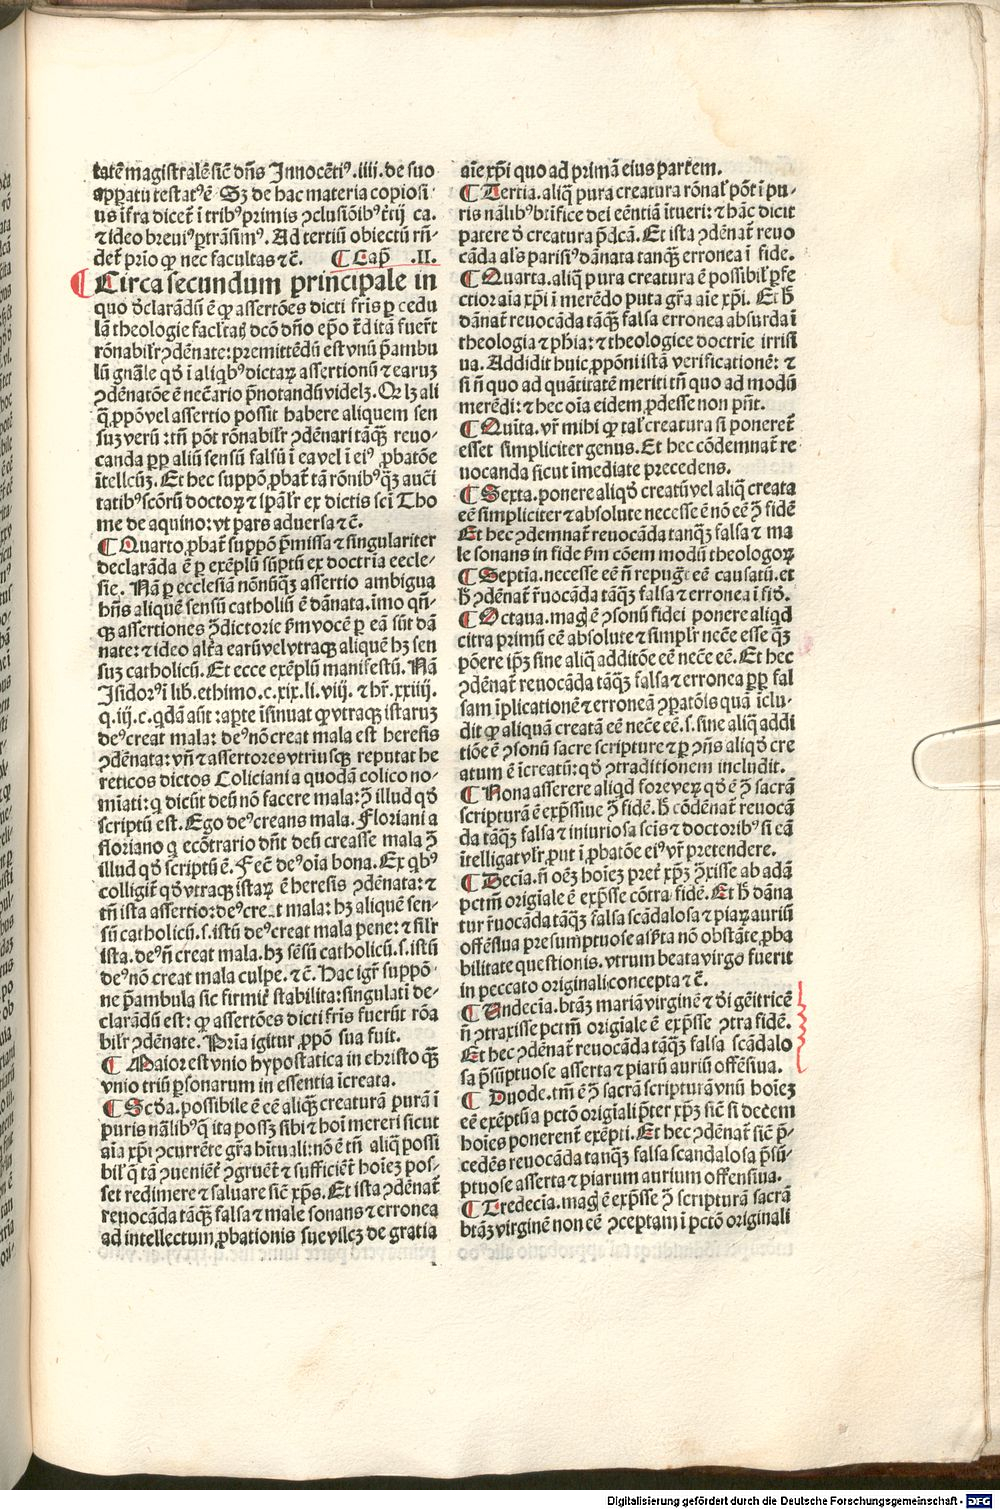 tatē magistralē sic̄ dn̄s Innocēti⁹ .iiii. de suo
apparatu testat᷒ ē Sz de hac materia copiosi⸗
us īfra dicet᷒ ī trib⁹ primis ꝯclusiōib⁹ t̄cij ca.
⁊ ideo breui⁹ ꝑtrāsim⁹. Ad tertiū obiectū rn̄⸗
det᷒ prīo ꝙ nec facultas ⁊c̄. ¶ Cap̄ .II.
¶ Circa secundum principale in
quo d̓clarādū ē ꝙ assertōes dicti fr̄is ꝑ cedu
lā theologie facl̄tatꝭ dcō dn̄o ep̄o t̄dita fuer̄t
rōnabilr̄ ꝯdēnate: premittēdū est vnū p̄ambu
lū gn̄ale qd̓ ī aliqb⁹ dictaꝝ assertionū ⁊ earuz
ꝯdēnatōe ē nec̄ario p̄notandū videlz. Q lz ali
q̄ ꝓpō vel assertio possit habere aliquem sen
suz verū: tn̄ pōt rōnabilr̄ ꝯdēnari tāqꝫ reuo⸗
canda ꝓpꝑ aliū sensū falsū ī ea vel ī ei⁹ ꝓbatōe
ītellc̄uz. Et hec suppō ꝓbat᷒ tā rōnib⁹ qꝫ aucī
tatib⁹ scōrū doctoꝝ ⁊ īpāl̄r ex dictis sci Tho
me de aquino: vt pars aduersa ⁊c̄.
¶ Quarto ꝓbat᷒ suppō p̄missa ⁊ singulariter
declarāda ē ꝑ exēplū sūptū ex doctrīa eccle⸗
sie. Nā ꝑ ecclesiā nōnūqꝫ assertio ambigua
hn̄s aliquē sensū catholicū ē dānata. īmo qn̄⸗
qꝫ assertiones ꝯdictorie ẜm vocē ꝑ eā sūt dā
nate: ⁊ ideo alt̄a earū vel vtraqꝫ aliquē hꝫ sen
suz catholicū. Et ecce exēplū manifestū. Nā
Isidor⁹ ī lib. ethimo. c. xix. li. viij. ⁊ hr̄. xxiiij.
q. iij. c. qdā aūt: aꝑte īsinuat ꝙ vtraqꝫ istaruz
de⁹ creat mala: de⁹ nō creat mala est heresis
ꝯdēnata: vn̄ ⁊ assertores vtriusqꝫ reputat he
reticos dictos Coliciani a quodā colico no⸗
mīati: q dicūt deū nō facere mala: ꝯ illud qd̓
scriptū est. Ego de⁹ creans mala. Floriani a
floriano q ecōtrario dn̄t deū creasse mala ꝯ
illud qd̓ scriptū ē. Fec̄ de⁹ oīa bona. Ex qb⁹
colligit᷒ qd̓ vtraqꝫ istaꝝ ē heresis ꝯdēnata: ⁊
tn̄ ista assertio: de⁹ creat mala: hꝫ aliquē sen⸗
sū catholicū. s. istū de⁹ creat mala pene: ⁊ sil̄r
ista. de⁹ n̄ creat mala. hꝫ sēsū catholicū. s. istū
de⁹ nō creat mala culpe. ⁊c̄. Hac igr̄ suppō⸗
ne p̄ambula sic firmit᷒ stabilita: singulatī de⸗
clarādū est: ꝙ assertōes dicti fr̄is fuerūt rōa
bilr̄ ꝯdēnate. Prīa igitur ꝓpō sua fuit.
¶ Maior est vnio hypostatica in christo qꝫ
vnio triū ꝑsonarum in essentia īcreata.
¶ Scd̓a. possibile ē eē aliqꝫ creaturā purā ī
puris nālib⁹ q ita possꝫ sibi ⁊ hoī mereri sicut
aīa xp̄i ꝯcurrēte gr̄a hītuali: nō ē tn̄ aliq̄ possi
bil̓ q tā ꝯueniēt᷒ ꝯgruēt᷒ ⁊ sufficiēt᷒ hoīeꝫ pos⸗
set redimere ⁊ saluare sic̄ xp̄s. Et ista ꝯdēnat᷒
reuocāda tāqꝫ falsa ⁊ male sonans ⁊ erronea
ad intellectum ꝓbationis sue vilcꝫ de gratia
aīe xp̄i quo ad primā eius partem.
¶ Tertia. aliq̄ pura creatura rōnal̓ pōt ī pu⸗
ris nālib⁹ b̓tifice dei eēntiā ītueri: ⁊ hāc dicit
patere d̓ creatura p̄dcā. Et ista ꝯdēnat᷒ reuo
cāda al̓s parisi⁹ dānata tanqꝫ erronea ī fide.
¶ Quarta. aliq̄ pura creatura ē possibil̓ ꝑfe
ctior aīa xp̄i ī merēdo puta gr̄a aīe xp̄i. Et h̓
dānat᷒ reuocāda tāqꝫ falsa erronea absurda ī
theologia ⁊ ph̄ia: ⁊ theologice doctrīe irrisi
ua. Addidit huic ꝓpōni istā verificationē: ⁊
si n̄ quo ad quātitatē meriti tn̄ quo ad modū
merēdi: ⁊ hec oīa eidem ꝓdesse non pn̄t.
¶ Quīta. vr̄ mihi ꝙ tal̓ creatura si poneret᷒
esset simpliciter genus. Et hec cōdemnat᷒ re
uocanda sicut īmediate precedens.
¶ Sexta. ponere aliqd̓ creatū vel aliq̄ creata
eē simpliciter ⁊ absolute necesse ē nō eē ꝯ fidē
Et hec ꝯdemnat᷒ reuocāda tanqꝫ falsa ⁊ ma
le sonans in fide ẜm cōem modū theologoꝝ
¶ Septīa. necesse eē n̄ repug᷒t eē causatū. et
h̓ ꝯdēnat᷒ r̄uocāda tāqꝫ falsa ⁊ erronea ī fid̓.
¶ Octaua. mag̓ ē ꝯsonū fidei ponere aliqd
citra primū eē absolute ⁊ simplr̄ necc̄e esse qꝫ
pōere ip̄ꝫ sine aliq̄ additōe eē necc̄e eē. Et hec
ꝯdēnat᷒ reuocāda tāqꝫ falsa ⁊ erronea ꝓpꝑ fal
sam īplicationē ⁊ erroneā ꝯꝑatōis quā īclu⸗
dit ꝙ aliquā creatā eē necc̄e eē. s. sine aliq̄ addi
tiōe ē ꝯsonū sacre scripture ⁊ ꝑ ꝯn̄s aliqd̓ cre
atum ē īcreatū: qd̓ ꝯtraditionem includit.
¶ Nona asserere aliqd fore veꝝ qd̓ ē ꝯ sacrā
scripturā ē exp̄ssiue ꝯ fidē. h̓ cōdēnat᷒ reuocā
da tāqꝫ falsa ⁊ iniuriosa scīs ⁊ doctorib⁹ si eā
ītelligat vl̓r ꝓut ī ꝓbatōe ei⁹ vr̄ pretendere.
¶ Decīa. n̄ oēꝫ hoīez pret᷒ xp̄ꝫ ꝯxisse ab adā
pctm̄ origīale ē exp̄sse cōtra fidē. Et h̓ dāna
tur r̄uocāda tāqꝫ falsa scādalosa ⁊ piaꝝ auriū
offēsiua presumptuose asr̄ta nō obstāte ꝓba
bilitate questionis. vtrum beata virgo fuerit
in peccato originali ꝯcepta ⁊c̄.
¶ Undecīa. btāꝫ mariā virginē ⁊ d̓i gēitricē
n̄ ꝯtraxisse pctm̄ origīale ē exp̄sse ꝯtra fidē.
Et hec ꝯdēnat᷒ reuocāda tāqꝫ falsa scādalo
sa p̄sūptuose asserta ⁊ piarū auriū offēsiua.
¶ Duode. tm̄ ē ꝯ sacrā scripturā vnū hoīeꝫ
eē exēptū a pctō origīali p̄ter xp̄ꝫ sic̄ si decem
hoīes ponerent᷒ exēpti. Et hec ꝯdēnat᷒ sic̄ p̄⸗
cedēs reuocāda tanqꝫ falsa scandalosa p̄sū⸗
ptuose asserta ⁊ piarum aurium offensiua.
¶ Tredecīa. mag̓ ē exp̄sse ꝯ scripturā sacrā
btāꝫ virginē non eē ꝯceptam ī pctō originali
Digitalisierung gefördert durch die Deutsche Forschungsgemeinschaft - DFG